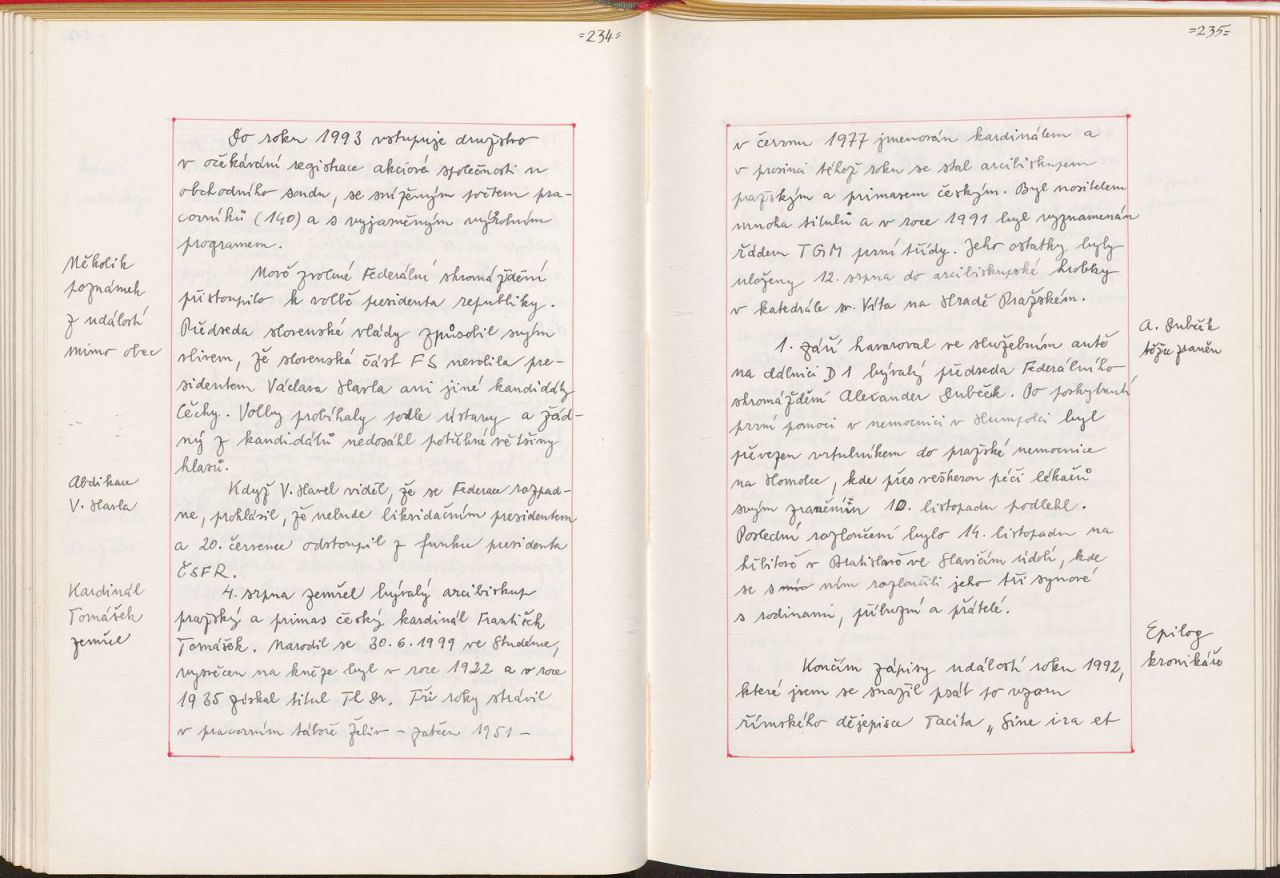 =234=
Do roku 1993 vstupuje družstvo
v očekávání registrace akciové společnosti u
obchodního soudu, se sníženým počtem pra-
covníků (140) a s vyjasněným výrobním
programem.
Několik
poznámek
z událostí
mimo obec
Nově zvolené Federální shromáždění
přistoupilo k volbě presidenta republiky.
Předseda slovenské vlády způsobil svým
vlivem, že slovenská část FS nevolila pre-
sidentem Václava Havla ani jiné kandidáty
Čechy. Volby probíhaly podle ústavy a žád-
ný z kandidátů nedosáhl potřebné většiny
hlasů.
Abdikace
V. Havla
Když V. Havel viděl, že se Federace rozpad-
ne, prohlásil, že nebude likvidačním presidentem
a 20. července odstoupil z funkce presidenta
ČSFR.
Kardinál
Tomášek
zemřel
4. srpna zemřel bývalý arcibiskup
pražský a primas český kardinál František
Tomášek. Narodil se 30.6.1999 ve Studénce,
vysvěcen na kněze byl v roce 1922 a v roce
1935 získal titul Th Dr. Tři roky strávil
v pracovním táboře Želiv – zatčen 1951 –
=235=
v červnu 1977 jmenován kardinálem a
v prosinci téhož roku se stal arcibiskupem
pražským a primasem českým. Byl nositelem
mnoha titulů a v roce 1991 byl vyznamenán
řádem TGM první třídy. Jeho ostatky byly
uloženy 12. srpna do arcibiskupské hrobky
v katedrále sv. Víta na Hradě Pražském.
A. Dubček
těžce zraněn
1. září havaroval ve služebním autě
na dálnici D 1 bývalý předseda Federálního
shromáždění Alexander Dubček. Po poskytnutí
první pomoci v nemocnici v Humpolci byl
převezen vrtulníkem do pražské nemocnice
na Homolce, kde přes veškerou péči lékařů
svým zraněním 10. listopadu podlehl.
Poslední rozloučení bylo 14. listopadu na
hřbitově v Bratislavě ve Slavičím údolí, kde
se s ním rozloučili jeho tři synové
s rodinami, příbuzní a přátelé.
Epilog
kronikáře
Končím zápisy událostí roku 1992,
které jsem se snažil psát po vzoru
římského dějepisce Tacita „Sine ira et